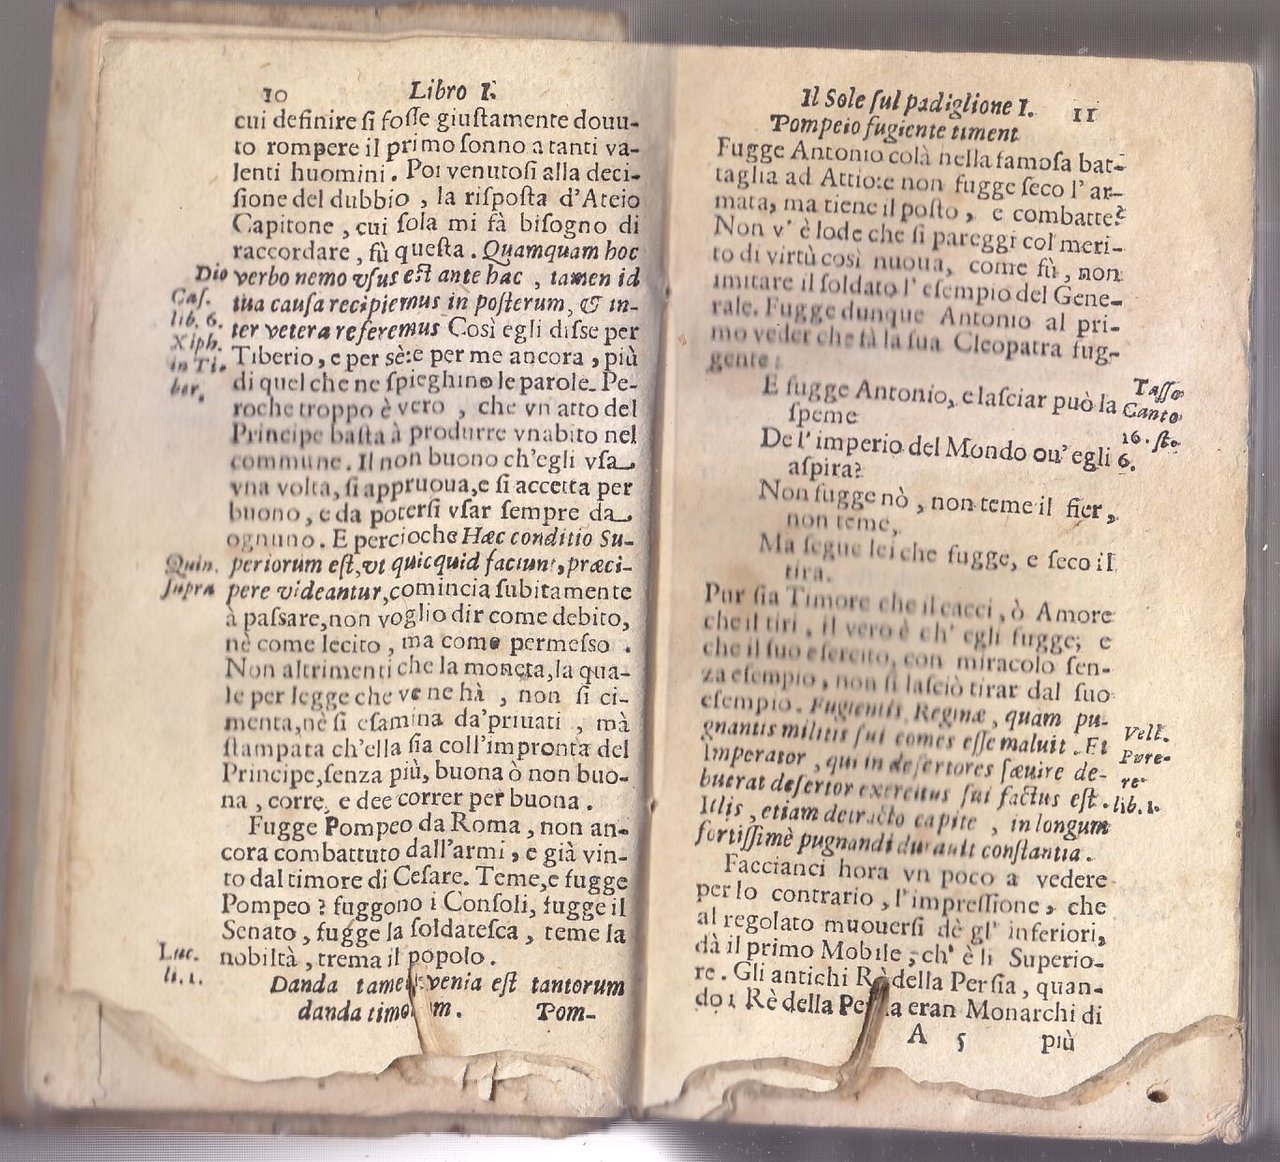 10 Libro I.
cui definire ſi foſſe giuſtamente douu-
to rompere il primo ſonno a tanti va-
lenti huomini. Poi venutoſi alla deci-
ſione del dubbio, la riſpoſta d'Ateio
Capitone, cui ſola mi fà biſogno di
raccordare, fù queſta. Quamquam hoc
verbo nemo vſus eſt ante hac, tamen id
tua cauſa recipiemus in poſterum, & in-
ter vetera referemus Così egli diſse per
Tiberio, e per sè: e per me ancora, più
di quel che ne ſpieghino le parole. Pe-
roche troppo è vero, che vn atto del
Principe baſta à produrre vnabito nel
commune. Il non buono ch'egli vſa
vna volta, ſi appruoua, e ſi accetta per
buono, e da poterſi vſar ſempre da
ognuno. E percioche Hæc conditio Su-
periorum eſt, vt quicquid faciunt, præci-
pere videantur, comincia ſubitamente
à paſsare, non voglio dir come debito,
nè come lecito, ma come permeſso.
Non altrimenti che la moneta, la qua-
le per legge che ve ne hà, non ſi ci-
menta, nè ſi eſamina da'priuati, mà
ſtampata ch'ella ſia coll'impronta del
Principe, ſenza più, buona ò non buo-
na, corre, e dee correr per buona.
Fugge Pompeo da Roma, non an-
cora combattuto dall'armi, e già vin-
to dal timore di Ceſare. Teme, e fugge
Pompeo? fuggono i Conſoli, fugge il
Senato, fugge la ſoldateſca, teme la
nobiltà, trema il popolo.
Danda tamen venia eſt tantorum
danda timorum.
Pom-
Dio
Caſ.
lib. 6.
Xiph.
in Ti-
ber.
Quin.
ſupra
Luc.
li. 1.
Il Sole ſul padiglione I. 11
Pompeio fugiente timent
Fugge Antonio colà nella famoſa bat-
taglia ad Attio: e non fugge ſeco l'ar-
mata, ma tiene il poſto, e combatte?
Non v'è lode che ſi pareggi col meri-
to di virtù così nuoua, come fù, non
imitare il ſoldato l'eſempio del Gene-
rale. Fugge dunque Antonio al pri-
mo veder che fà la ſua Cleopatra fug-
gente:
E fugge Antonio, e laſciar può la
ſpeme
De l'imperio del Mondo ou'egli
aſpira?
Non fugge nò, non teme il fier,
non teme,
Ma ſegue lei che fugge, e ſeco il
tira.
Pur ſia Timore che il cacci, ò Amore
che il tiri, il vero è ch'egli fugge; e
che il ſuo eſercito, con miracolo ſen-
za eſempio, non ſi laſciò tirar dal ſuo
eſempio. Fugientis Reginæ, quam pu-
gnantis militis ſui comes eſſe maluit. Et
Imperator, qui in deſertores ſæuire de-
buerat deſertor exercitus ſui factus eſt.
Illis, etiam detracto capite, in longum
fortiſſimè pugnandi durauit conſtantia.
Faccianci hora vn poco a vedere
per lo contrario, l'impreſſione, che
al regolato muouerſi dè gl'inferiori,
dà il primo Mobile, ch'è li Superio-
re. Gli antichi Rè della Perſia, quan-
do i Rè della Perſia eran Monarchi di
A 5 più
Taſſo
Canto
16. ſto
6.
Vell.
Pate-
re
lib. 1.